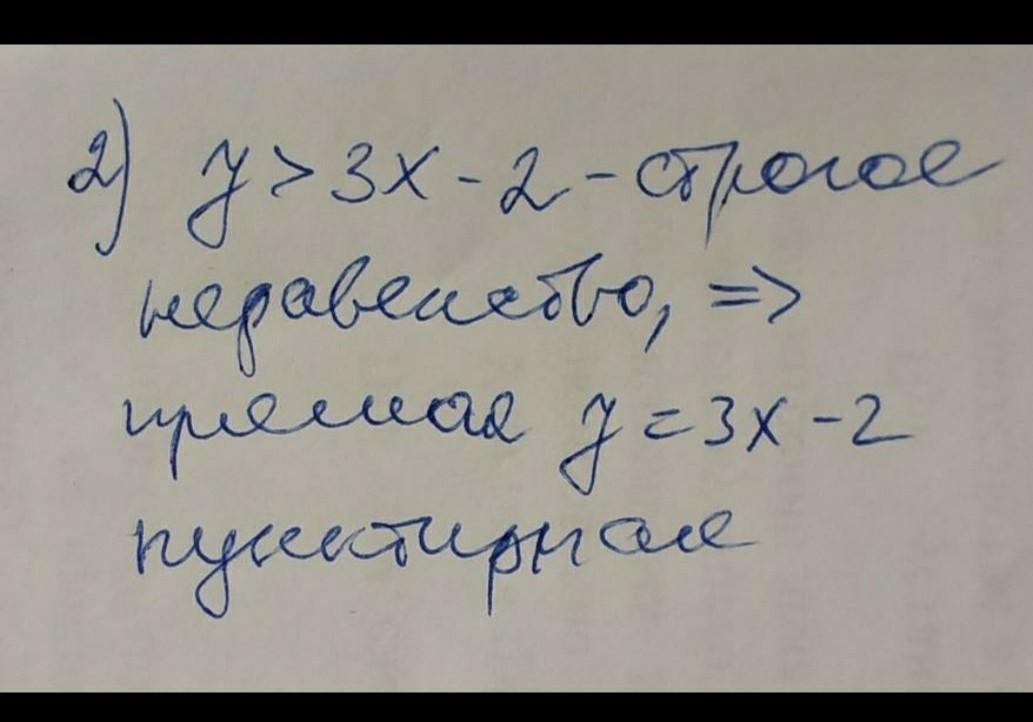 2) y > 3x - 2 - строгое
неравенство, =>
прямая y = 3x - 2
пунктирная